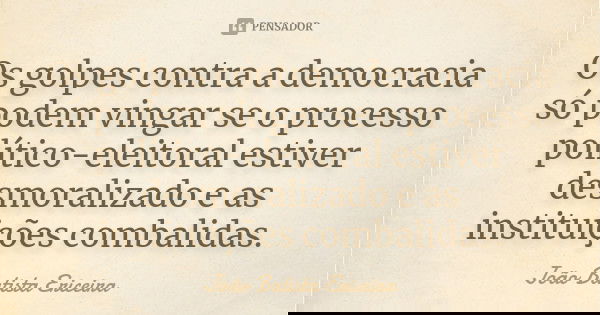 PENSADOR
Os golpes contra a democracia
só podem vingar se o processo
político-eleitoral estiver
desmoralizado e as
instituições combalidas.
João Batista Ericeira